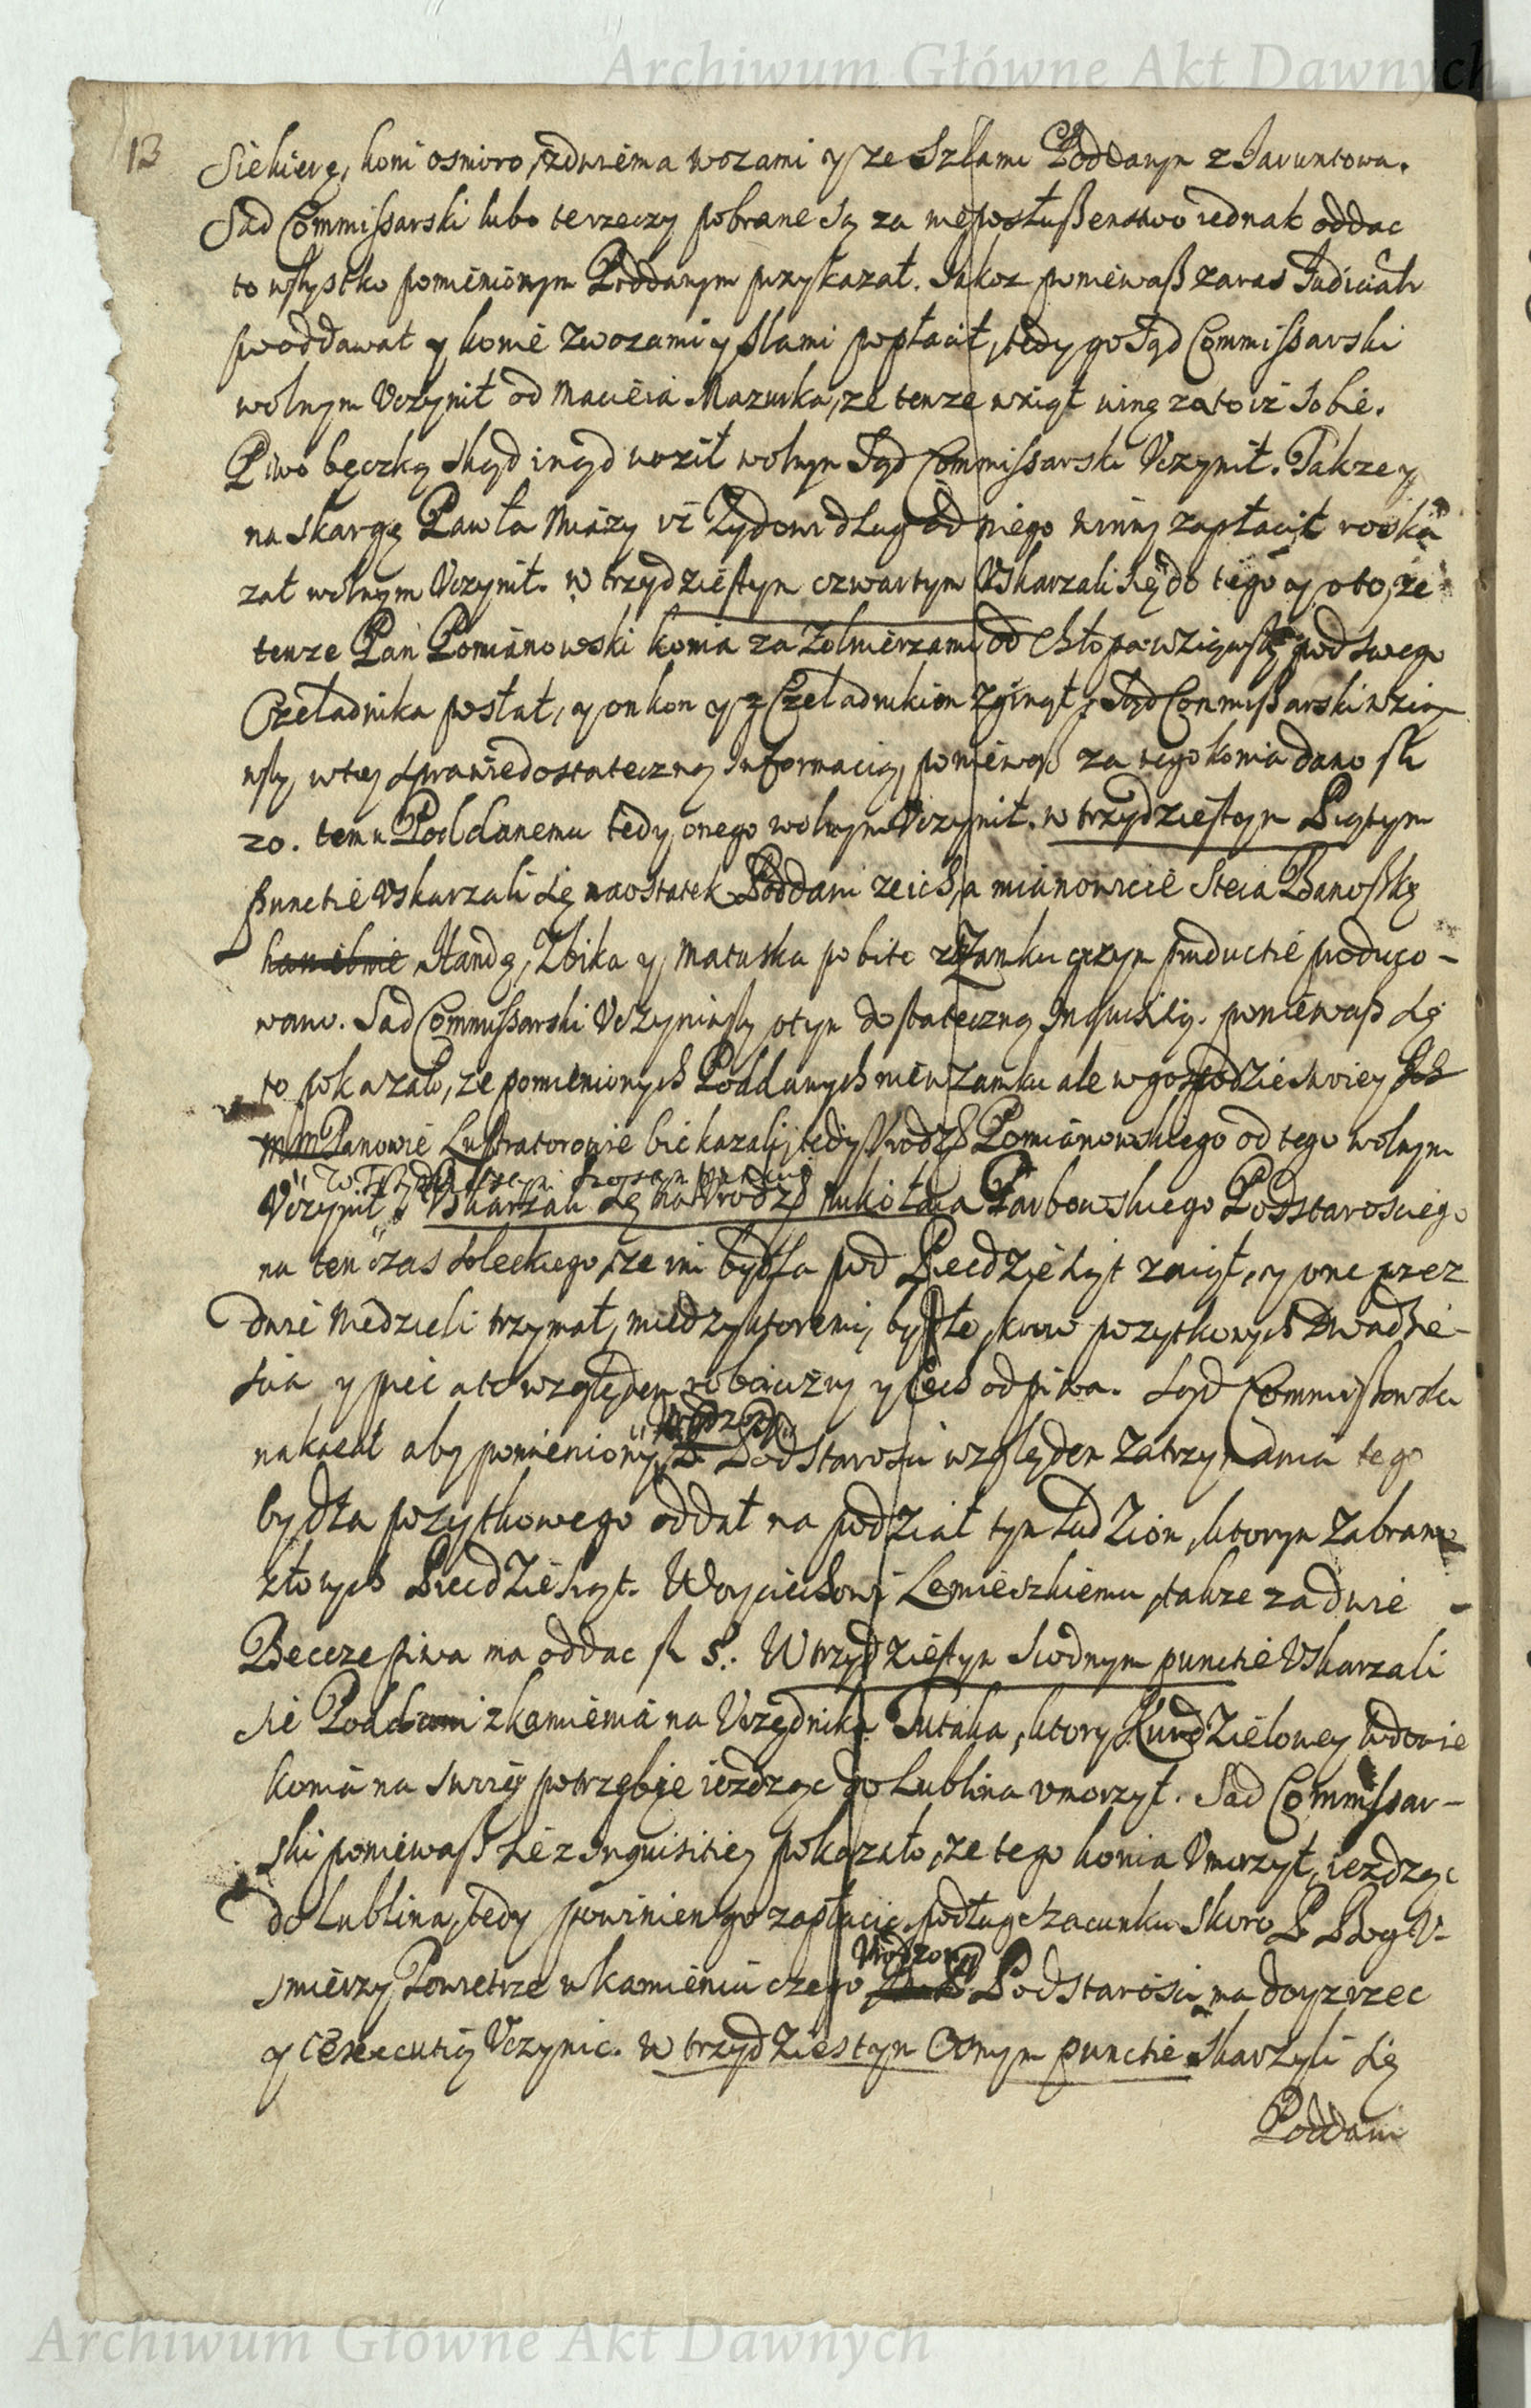 Archiwum Główne Akt Dawnych
13
Siekierę, koni osmioro, zdwiema wozami y ze Szlami Poddanym z Jaruntowa.
Sąd Commissarski lubo te rzeczy pobrane są za nieposłuszenstwo iednak oddac
to wszystko pomienionym Poddanym przykazał. Jakoz poniewasz zaraz Judicialr
pooddawał y konie zwozami y szlami popłacił, tedy go Sąd Commissarski
wolnym Vczynił od Macieia Mazurka, ze tenze wziął winę zato iz sobie
Piwo beczkę skąd inąd woził wolnym Sąd Commissarski Vczynił. Takze y
na skargę Pawła Miązy iż Zydowi dług od niego winny zapłacic roska
zał wolnym Vczynił. w trzydziestym czwartym Vskarzali się do tego y oto, ze
tenze Pan Pomianowski konia za Zolnierzami od chłopa wziąwszy pod swego
Czeladnika posłał, y on kon y z Czeladnikiem zginął, Sąd Commissarski wzią
wszy, wtey sprawie dostateczną Informacią, poniewasz za tego konia dano fl
20. temu Poddanemu tedy onego wolnym Vczynił. w trzydziestym Piątym
Punctie Vskarzali się naostatek Poddani ze ich, a mianowicie Stecia Banoszkę
haniebnie Handę, Zbika y Matuska pobito w Zamku czym productie produco-
wano. Sąd Commissarski Vczyniwszy otym dostateczną Inquisitią. poniewasz się
to pokazało, ze pomienionych Poddanych nie w zamku ale w gospodzie swoiey Ich
mm Panowie Lustratorowie bic kazali, tedy Vrodz Pomianowskiego od tego wolnym
w Trzydziestym Szostym punctie
Vczynił. Vskarzali się na Vrodz Mikołaia Parbowskiego Podstarosciego
na ten czas Soleckiego, ze im bydła pod Piecdziesiąt zaiął, y one przez
dwie Niedzieli trzymał, miedzy ktoremi, było, krow pozytkowych Dwadzie-
scia y piec a to względem robocizny y Cech od piwa. Sąd Commissarski
nakazał aby pomieniony P Podstarosci względem zatrzymania tego
Vrodzony
bydła pozytkowego oddał na podział tym ludziom, ktorym zabrano
złotych Piecdziesiąt. Woyciechowi Lemieszkiemu, takze za dwie
Beccze piwa ma oddac fl 8. W trzydziestym Siodmym punctie Vskarzali
sie Poddani z kamienia na Vrzędnika Tutaka, ktory Kurdzielowey wdowie
konia na swoię potrzebę iezdząc do Lublina vmorzył. Sąd Commissar-
ski poniewasz sie z Inquisitiey pokazało, ze tego konia Vmorzył, iezdząc
do Lublina, tedy powinien go zapłacic podług szacunku skoro P Bog V-
smierzy Powietrze w kamieniu czego Podstarosci ma doyzrzec
Vrodzony
y Executią Vczynic. w trzydziestym Osmym punctie skarzyli się
Poddani
Archiwum Główne Akt Dawnych